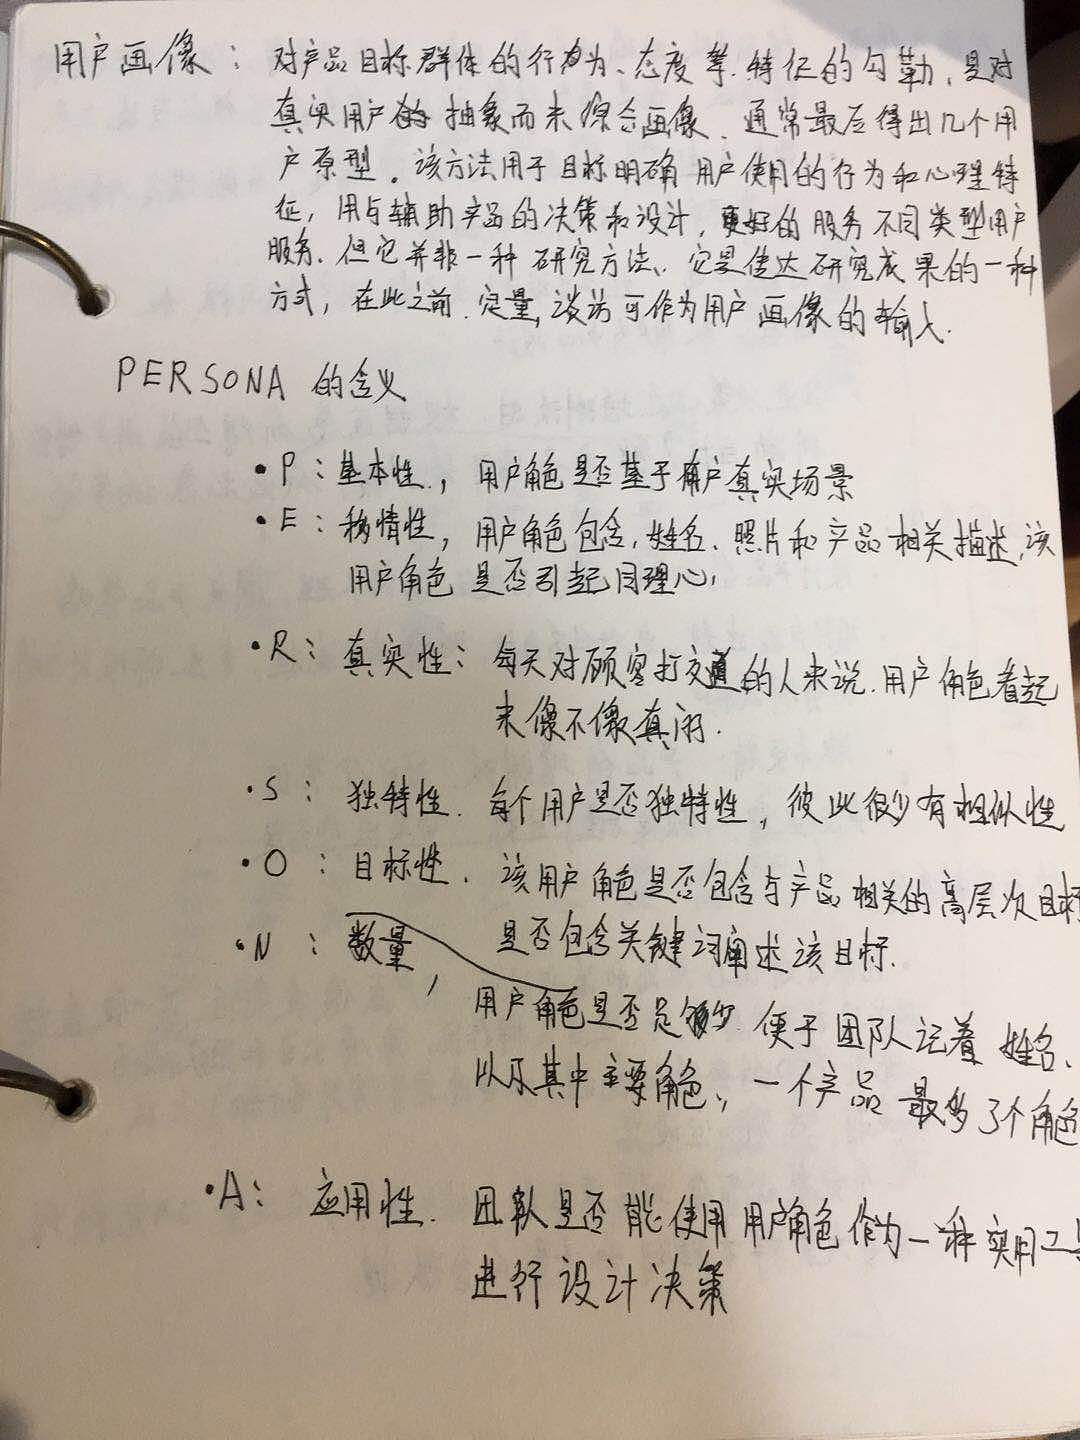 用户画像：对产品目标群体的行为、态度等.特征的勾勒，是对
真实用户的抽象而来综合画像，通常最后得出几个用
户原型。该方法用于目标明确用户使用的行为和心理特
征，用与辅助产品的决策和设计，更好的服务不同类型用户
服务.但它并非一种研究方法、它是传达研究成果的一种
方式，在此之前.定量,谈访可作为用户画像的输入.
PERSONA 的含义
·P：基本性，用户角色是否基于用户真实场景
·E：移情性，用户角色包含,姓名、照片和产品相关描述,该
用户角色是否引起同理心,
·R：真实性：每天对顾客打交道的人来说.用户角色看起
来像不像真的.
·S：独特性.每个用户是否独特性，彼此很少有相似性
·O：目标性.该用户角色是否包含与产品相关的高层次目标
是否包含关键词阐述该目标.
·N：数量，
用户角色是否足够少.便于团队记着姓名、
以及其中主要角色、，一个产品最多3个角色
·A：应用性.团队是否能使用用户角色作为一种实用工具
进行设计决策